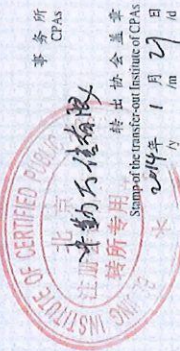 事务所
CPAs
中勤万信有限
转出协会盖章
Stamp of the transfer-out Institute of CPAs
2014年 1 月 27 日
/y /m /d
INSTITUTE OF CERTIFIED
北京
注册
转所专用